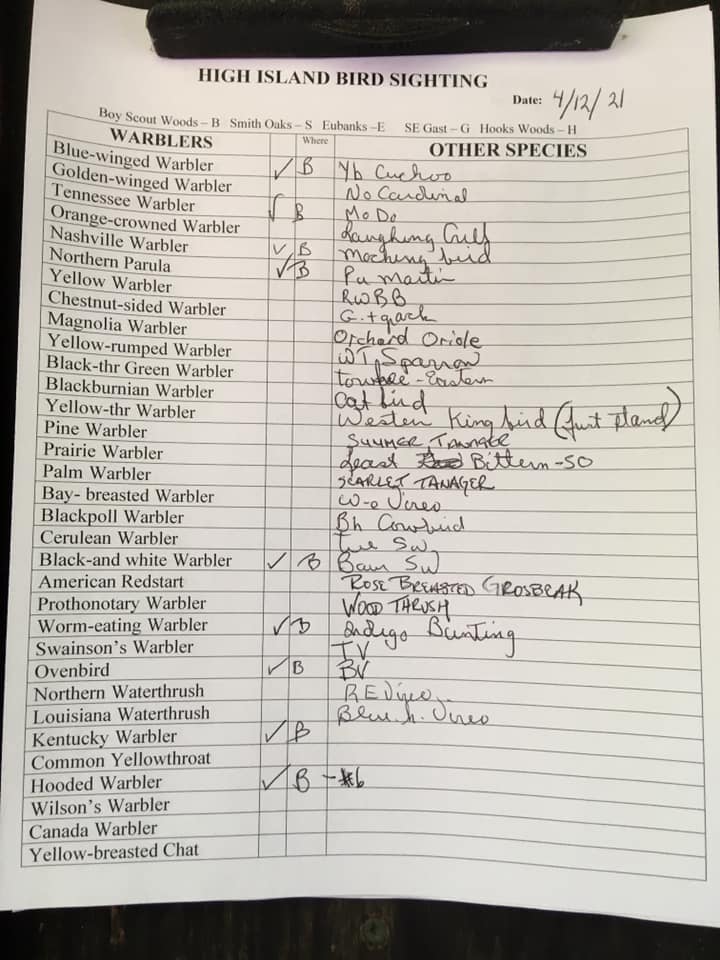 HIGH ISLAND BIRD SIGHTING
Date: 4/12/21
Boy Scout Woods – B Smith Oaks – S Eubanks –E SE Gast – G Hooks Woods – H
WARBLERS Where OTHER SPECIES
Blue-winged Warbler ✓ B Yb Cuckoo
Golden-winged Warbler No Cardinal
Tennessee Warbler ✓ B Mo Do
Orange-crowned Warbler Laughing Gull
Nashville Warbler ✓ B Mocking bird
Northern Parula ✓ B Pu Martin
Yellow Warbler RWBB
Chestnut-sided Warbler G.t grack
Magnolia Warbler Orchard Oriole
Yellow-rumped Warbler WT Sparrow
Black-thr Green Warbler Towhee - Eastern
Blackburnian Warbler Cat bird
Yellow-thr Warbler Western King bird
Pine Warbler SUMMER TANAGER
Prairie Warbler Least Bittern - SO
Palm Warbler SCARLET TANAGER
Bay- breasted Warbler W-e Vireo
Blackpoll Warbler Bh Cowbird
Cerulean Warbler Tree Sw
Black-and white Warbler ✓ B Barn Sw
American Redstart ROSE BREASTED GROSBEAK
Prothonotary Warbler WOOD THRUSH
Worm-eating Warbler ✓ B Indigo Bunting
Swainson's Warbler TV
Ovenbird ✓ B BV
Northern Waterthrush RE Vireo
Louisiana Waterthrush Blue.h. Vireo
Kentucky Warbler ✓ B
Common Yellowthroat
Hooded Warbler ✓ B - #6
Wilson's Warbler
Canada Warbler
Yellow-breasted Chat